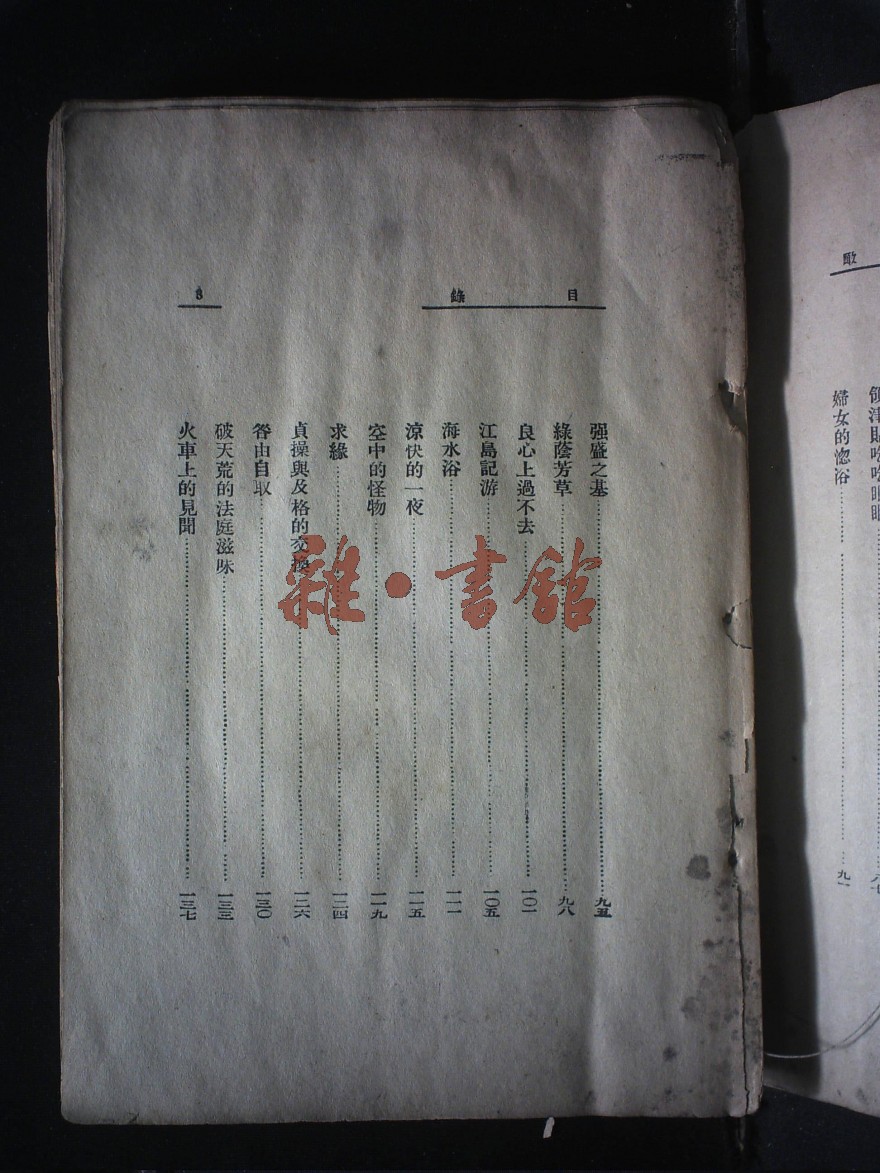 目錄
3
强盛之基……九五
綠蔭芳草……九八
良心上過不去……一〇一
江島記游……一〇五
海水浴……一一一
涼快的一夜……一一五
空中的怪物……一一九
求緣……一二四
貞操與及格的交換……一二六
咎由自取……一三〇
破天荒的法庭滋味……一三三
火車上的見聞……一三七
雜·書館
婦女的浴……九一